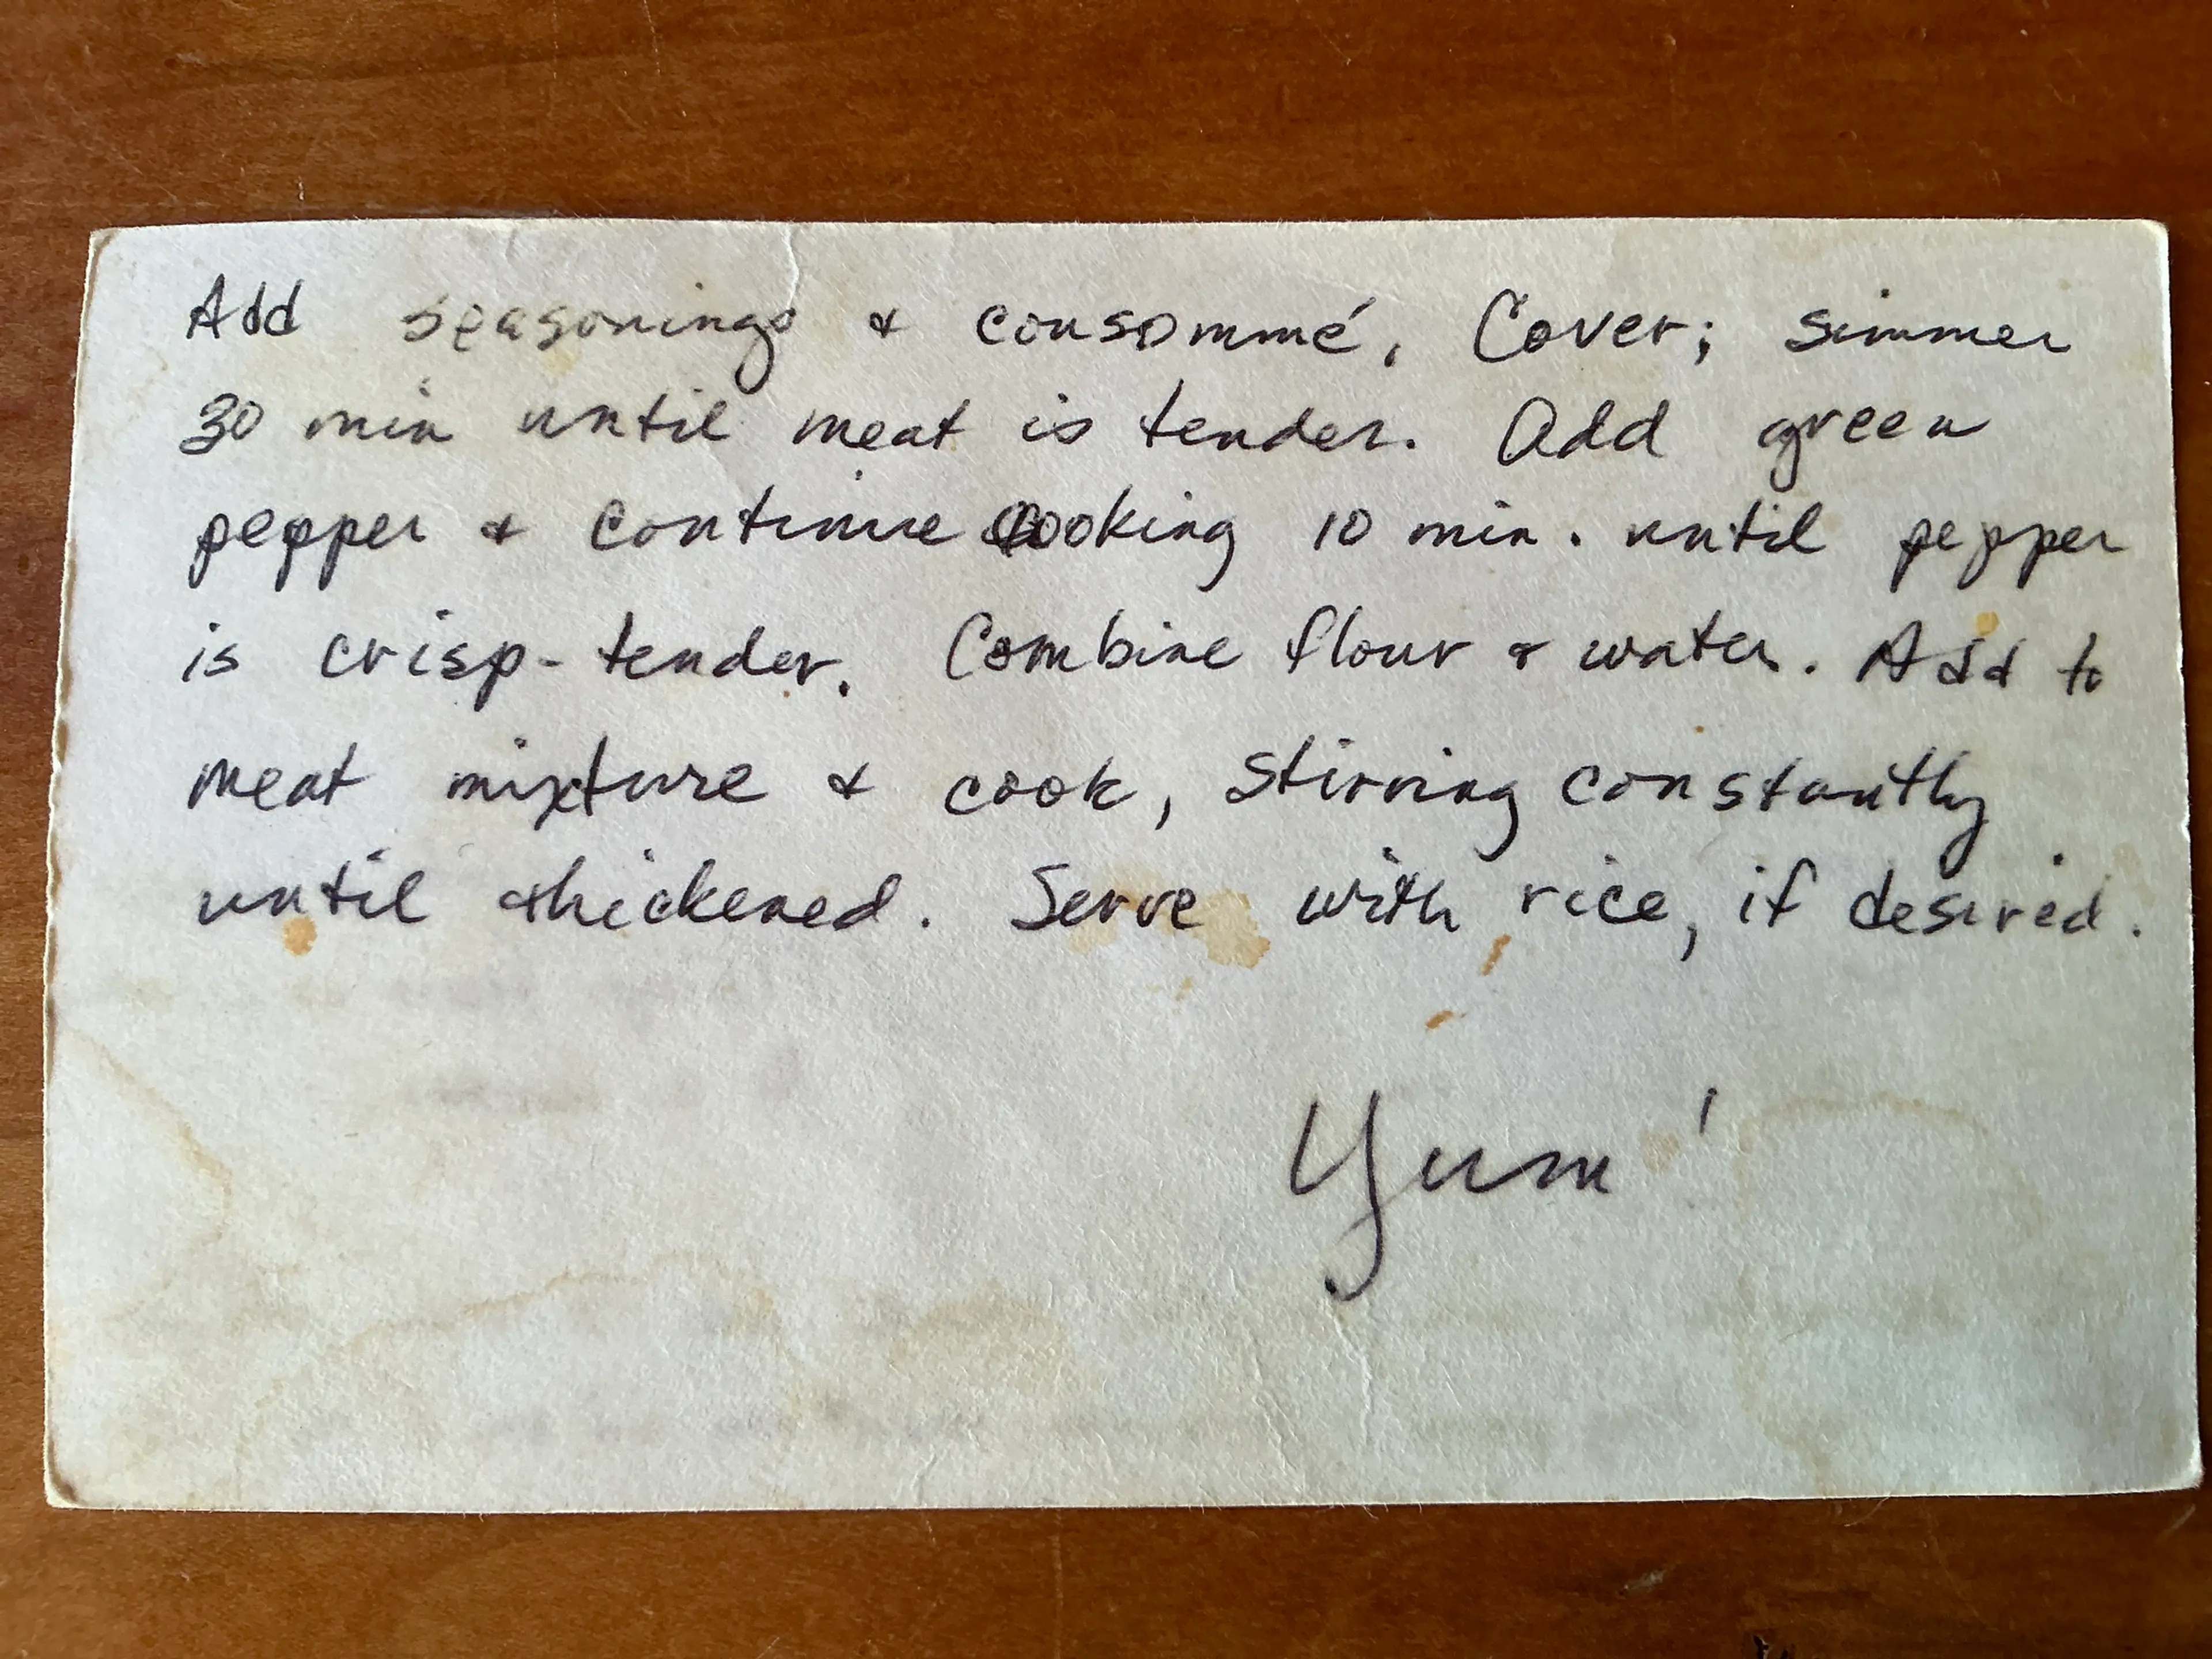 Add seasonings & consommé. Cover; simmer
30 min until meat is tender. Add green
pepper & continue cooking 10 min. until pepper
is crisp-tender. Combine flour & water. Add to
meat mixture & cook, stirring constantly
until thickened. Serve with rice, if desired.
Yum!